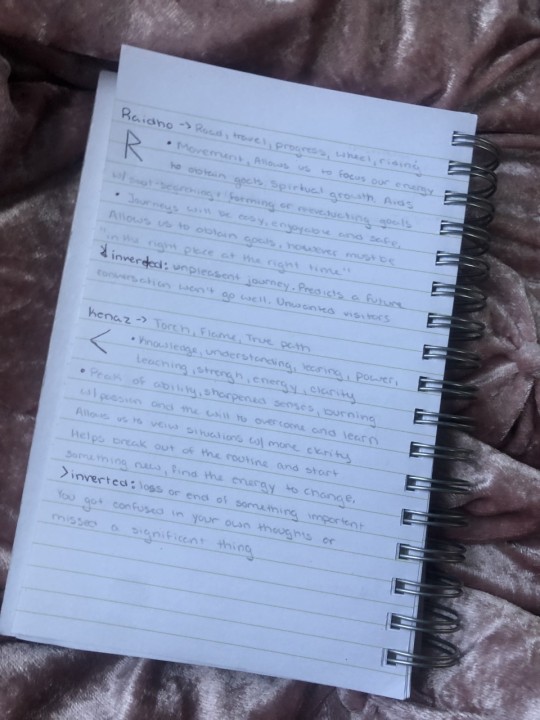 Raidho → Road, travel, progress, wheel, riding
R • Movement, Allows us to focus our energy
to obtain goals. Spiritual growth. Aids
w/ soul-searching + forming or reevaluating goals
• Journeys will be easy, enjoyable and safe,
Allows us to obtain goals, however must be
"in the right place at the right time"
inverted: unpleasent journey. Predicts a future
conversation won't go well. Unwanted visitors
Kenaz → Torch, Flame, True path
< • Knowledge, understanding, learing, power,
teaching, strengh, energy, clarity
• Peak of ability, sharpened senses, burning
w/ passion and the will to overcome and learn
Allows us to veiw situations w/ more clarity
Helps break out of the routine and start
something new, Find the energy to change.
>inverted: loss or end of something important
You got confused in your own thoughts or
missed a significent thing